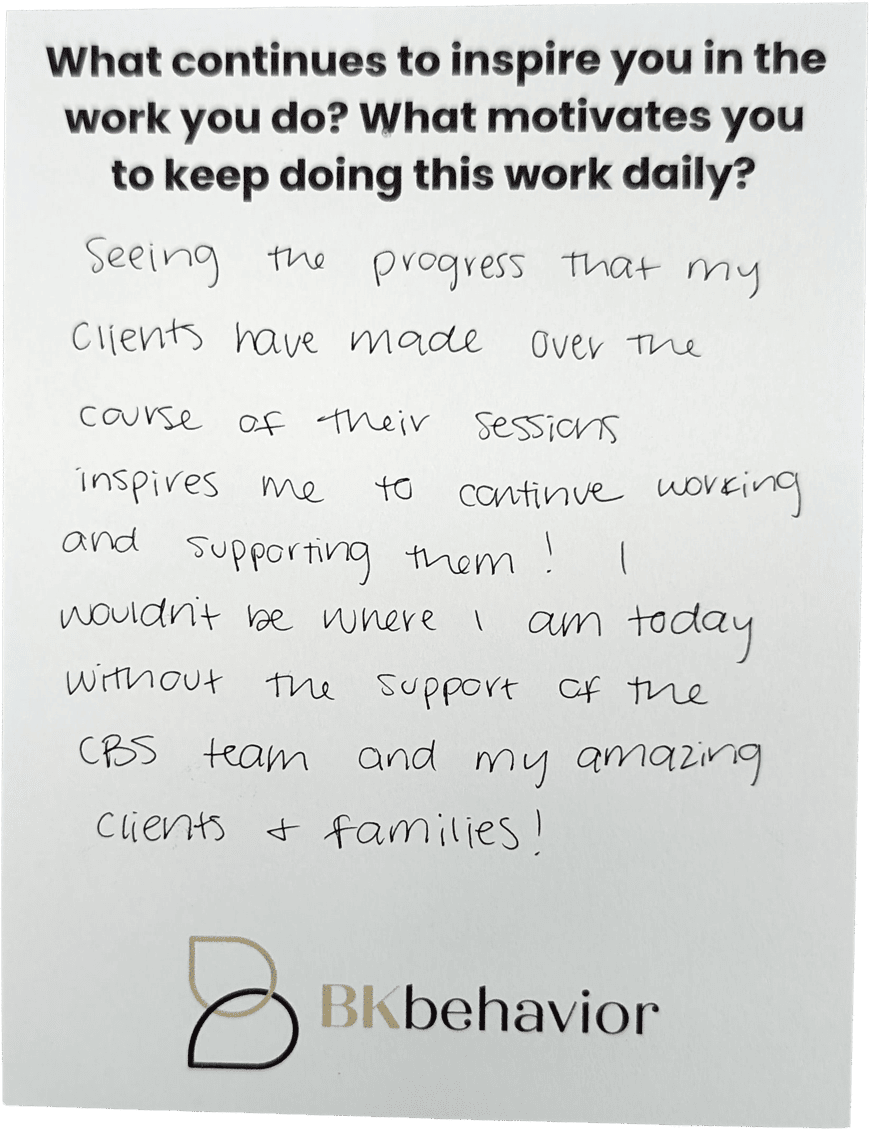 What continues to inspire you in the
work you do? What motivates you
to keep doing this work daily?
Seeing the progress that my
clients have made over the
course of their sessions
inspires me to continue working
and supporting them! I
wouldn't be where I am today
without the support of the
CBS team and my amazing
clients + families!
BKbehavior